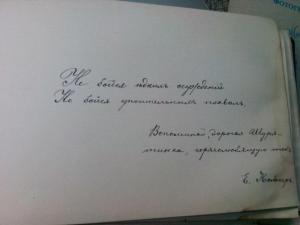 Не бойся ѣдкихъ осужденій
Но бойся упоительныхъ похвалъ.
Вспоминай, дорогая Шуря-
тинка, горячолюбящую тебя
Е.
ФОТОГ